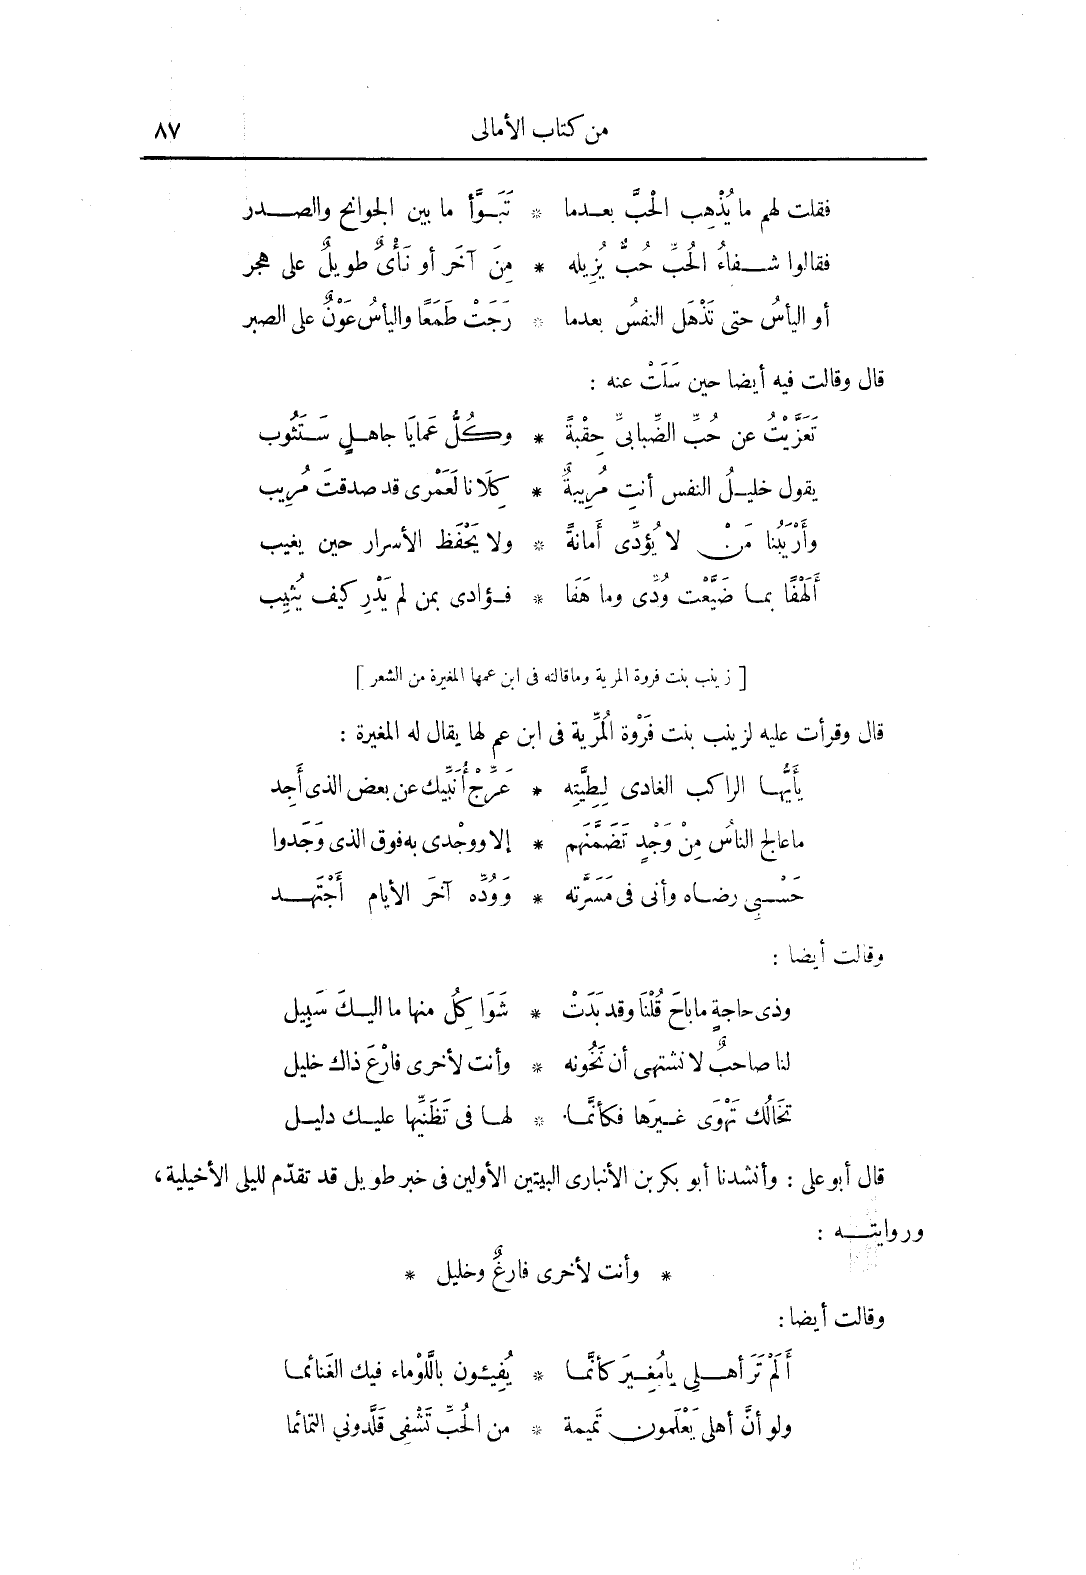 من كتاب الأمالى ٨٧
فقلت لهم ما يُذْهِب الْحُبَّ بعـدما * تَبَـوَّأ ما بين الجوانح والصــدر
فقالوا شــفاءُ الحُبِّ حُبٌّ يُزِيله * مِنَ آخَر أو نَأْىٌ طويلٌ على هجر
أو اليأسُ حتى تَذْهَل النفسُ بعدما * رَجَتْ طَمَعًا واليأسُ عَوْنٌ على الصبر
قال وقالت فيه أيضا حين سَلَتْ عنه :
تَعَزَّيْتُ عن حُبِّ الضِّبابىِّ حِقْبةً * وكُلُّ عَمايَا جاهـلٍ سَـتَثُوب
يقول خليـلُ النفس أنتِ مُرِيبةٌ * كِلَانا لَعَمْرى قد صدقتَ مُرِيب
وأَرْيَبُنا مَنْ لا يُؤدِّى أَمانةً * ولا يَحْفَظ الأسرار حين يغيب
أَلَهْفًا بمـا ضَيَّعْت وُدِّى وما هَفَا * فـؤادى بمن لم يَدْرِ كيف يُثِيب
[ زينب بنت فروة المرية وماقالته فى ابن عمها المغيرة من الشعر ]
قال وقرأت عليه لزينب بنت فَرْوة المُرِّية فى ابن عم لها يقال له المغيرة :
يأَيُّهـا الراكب الغادى لِطِيَّتِه * عَرِّجْ أُنَبِّيك عن بعض الذى أَجِد
ماعالج الناسُ مِنْ وَجْدٍ تَضَمَّنَهم * إلا ووجْدى به فوق الذى وَجَدوا
حَسْـبِى رضـاه وأنى فى مَسَرَّتِه * وَوُدِّه آخرَ الأيام أَجْتَهـــد
وقالت أيضا :
وذى حاجةٍ ماباحَ قُلْنَا وقد بَدَتْ * شَوَا كِلُ منها ما اليـكَ سَبِيل
لنا صاحبٌ لا نشتهى أن نَخُونه * وأنت لأخرى فارْعَ ذاك خليل
تخالُك تَهْوَى غـيرَها فكأنَّمـا * لهـا فى تَظَنِّيها عليـك دليـل
قال أبو على : وأنشدنا أبو بكر بن الأنبارى البيتين الأولين فى خبر طويل قد تقدّم لليلى الأخيلية ،
وروايتــه :
* وأنت لأخرى فارغٌ وخليل *
وقالت أيضا :
أَلَمْ تَرَ أهــلِى يامُغِـيرَ كأنَّما * يُفِيئـون باللَّوْماء فيك الغَنائمـا
ولو أنَّ أهلى يَعْلَمون تَمِيمة * من الحُبِّ تَشْفِى قَلَّدونى التمائما